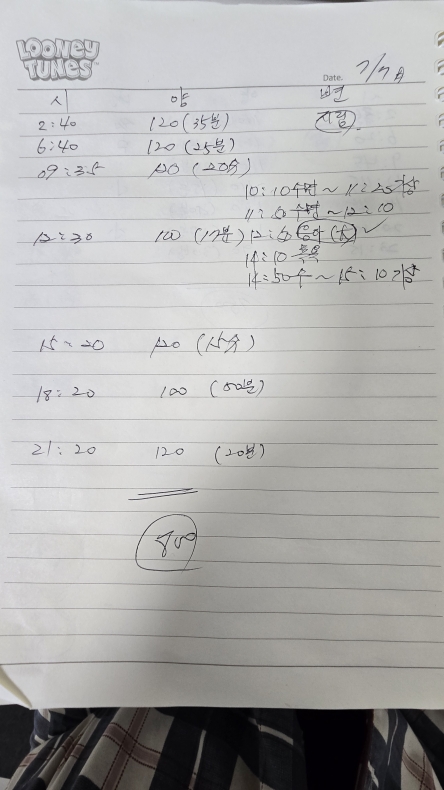 LOONEY
TUNES
Date. 7/7 月
시 양 변
2:40 120 (35분)
6:40 120 (25분)
09:35 120 (20分)
10:10 수면 ~ 11:25 기상
11: 수면 ~ 12:10
12:30 100 (17분) 12: 응아 (大) ✓
14:10 목욕
14:50 수 ~ 15:10 기상
15:20 120 (15分)
18:20 100 (분)
21:20 120 (20분)
800